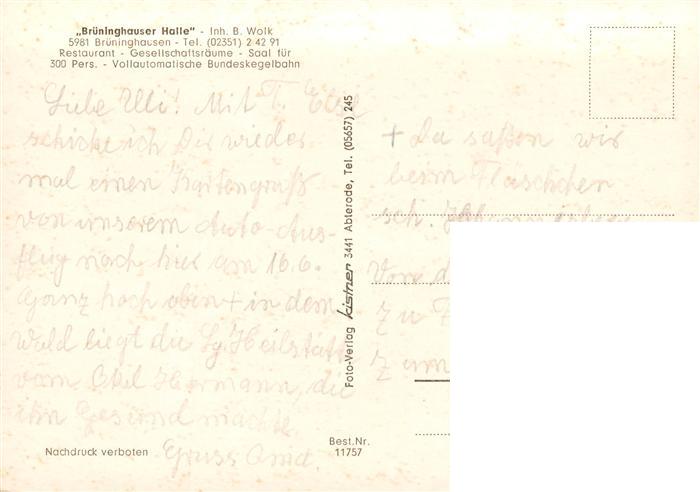 „Brüninghauser Halle" - Inh. B. Wolk
5981 Brüninghausen - Tel. (02351) 2 42 91
Restaurant - Gesellschaftsräume - Saal für
300 Pers. - Vollautomatische Bundeskegelbahn
Liebe Ulli! Mit T.
schicke ich Dir wieder
mal einen Kartengruß
von unserem Auto-Aus-
flug nach hier am 16.6.
Ganz hoch oben + in dem
Wald liegt die Lg. Heilstätt
vom Onkel Hermann, die
ihn Gesund machte.
Gruss
Nachdruck verboten
Foto-Verlag kistner 3441 Abterode, Tel. (05657) 245
Best.Nr.
11757
+ Da saßen wir
beim Fläschchen
sch.
Von
zu
zum